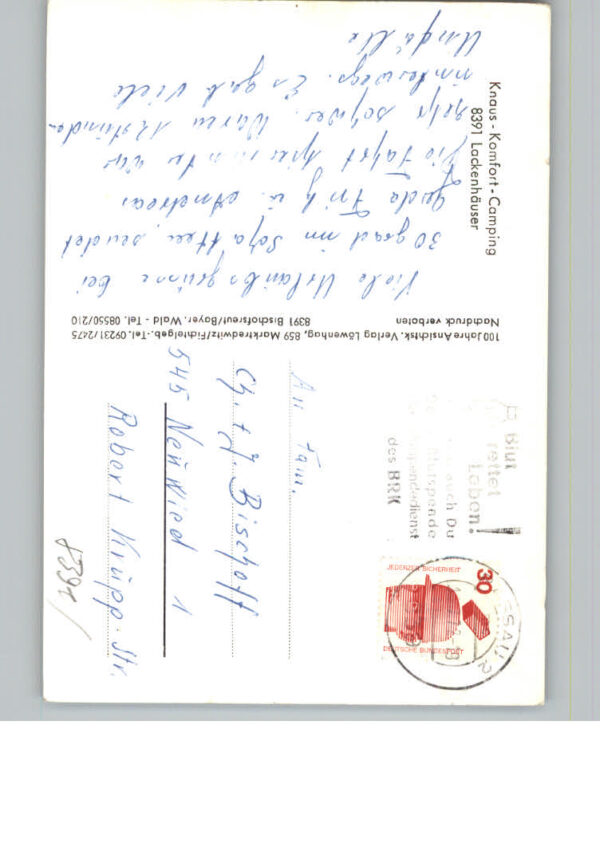 Knaus - Komfort - Camping
8391 Lackenhäuser
Viele Urlaubsgrüsse bei
30 grad im Schatten, sendet
Gerda Fritz u. Andreas
Die Fahrt hier unte war
sehr schwer. Waren 12 stunden
unterwegs. Es gab viele
Unfälle
100 Jahre Ansichtsk. Verlag Löwenhag, 859 Marktredwitz/Fichtelgeb.-Tel. 09231/2475
Nachdruck verboten 8391 Bischofsreut/Bayer. Wald - Tel. 08550/210
Blut
rettet
Leben!
auch Du
Blutspende
des BRK
JEDERZEIT SICHERHEIT
30
DEUTSCHE BUNDESPOST
PASSAU 2
An Fam.
Ch. + J. Bischoff
545 Neuwied 1
Robert Krüpp-Str.
8391